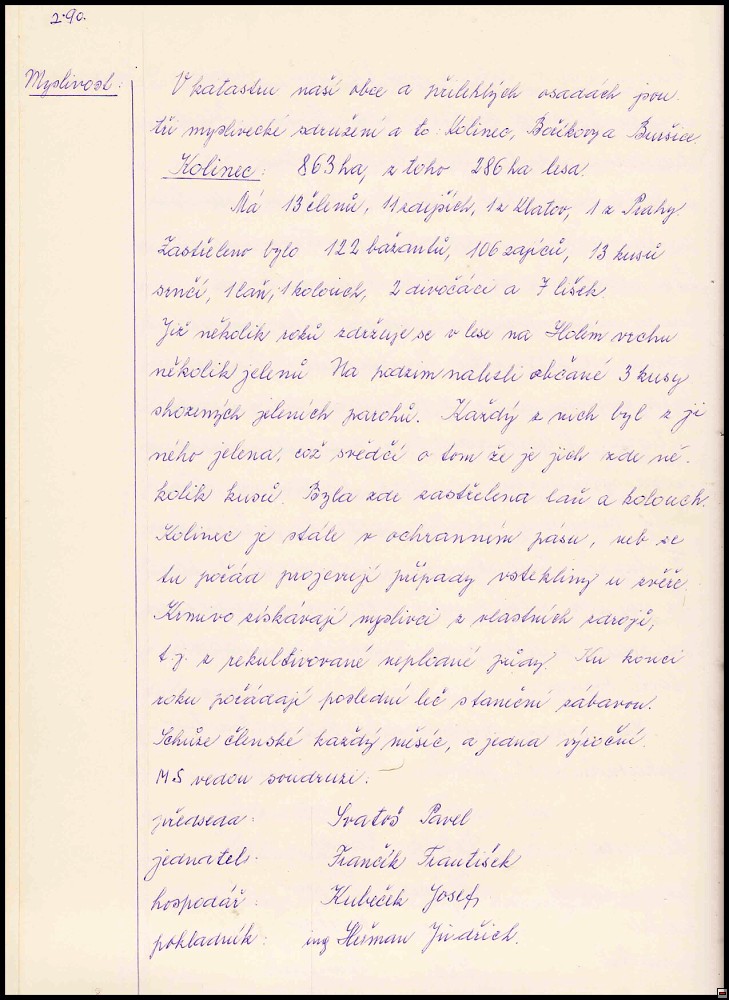 290.
Myslivost:
V katastru naší obce a přilehlých osadách jsou
tři myslivecké sdružení a to: Kolinec, Bořikovy a Buršice.
Kolinec: 863 ha, z toho 286 ha lesa.
Má 13 členů, 11 zdejších, 1 z Klatov, 1 z Prahy.
Zastřeleno bylo 122 bažantů, 106 zajíců, 13 kusů
srnčí, 1 laň, 1 kolouch, 2 divočáci a 7 lišek.
Již několik roků zdržuje se v lese na Holém vrchu
několik jelenů. Na podzim nalezli občané 3 kusy
shozených jeleních parohů. Každý z nich byl z ji
ného jelena, což svědčí o tom že je jich zde ně-
kolik kusů. Byla zde zastřelena laň a kolouch.
Kolinec je stále v ochranném pásu, neb se
tu pořád projevují případy vztekliny u zvěře.
Krmivo získávají myslivci z vlastních zdrojů,
t.j. z rekultivované neplodné půdy. Ku konci
roku pořádají poslední leč s taneční zábavou.
Schůze členské každý měsíc, a jedna výroční.
MS vedou soudruzi:
předseda: Svatoš Pavel
jednatel: Frančík František
hospodář: Kubeček Josef,
pokladník: ing Heřman Jindřich.